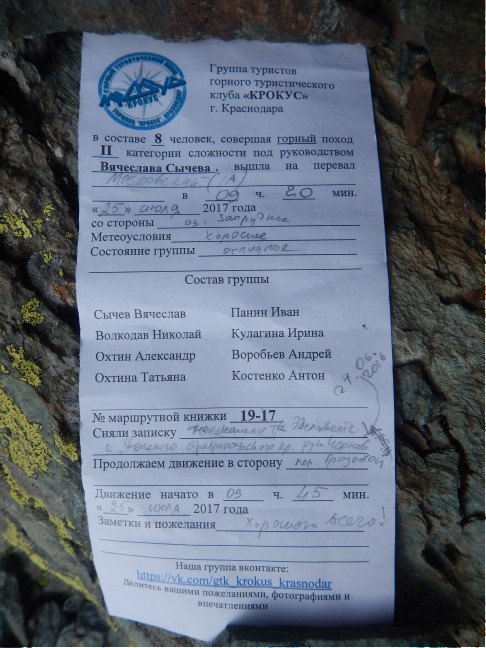 КРОКУС
Группа туристов
горного туристического
клуба «КРОКУС»
г. Краснодара
в составе 8 человек, совершая горный поход
II категории сложности под руководством
Вячеслава Сычева, вышла на перевал
(1А)
в 09 ч. 20 мин.
«25» июля 2017 года
со стороны оз. Запрудное
Метеоусловия хорошие
Состояние группы отличное
Состав группы
Сычев Вячеслав Панин Иван
Волкодав Николай Кулагина Ирина
Охтин Александр Воробьев Андрей
Охтина Татьяна Костенко Антон
29.06.2016
№ маршрутной книжки 19-17
Сняли записку т/к Эдельвейс
с. Донского Ставропольского кр. рук.
Продолжаем движение в сторону пер. Грозовой
Движение начато в 09 ч. 45 мин.
«25» июля 2017 года
Заметки и пожелания Хорошего всего!
Наша группа вконтакте:
https://vk.com/gtk_krokus_krasnodar
Делитесь вашими пожеланиями, фотографиями и
впечатлениями